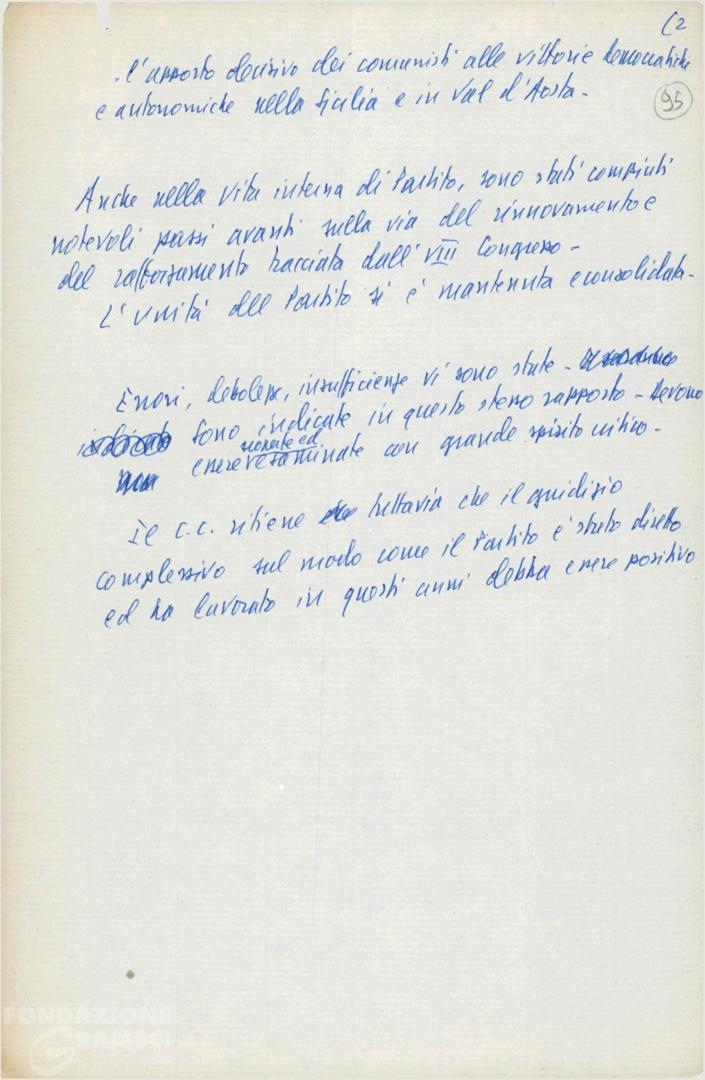 (2
. l'apporto decisivo dei comunisti alle vittorie democratiche
e autonomiche nella Sicilia e in Val d'Aosta -
95
Anche nella vita interna di Partito, sono stati compiuti
notevoli passi avanti sulla via del rinnovamento e
del rafforzamento tracciata dall' VIII Congresso -
L'unità del Partito si è mantenuta e consolidata -
Errori, debolezze, insufficienze vi sono state -
indicate sono indicate in questo stesso rapporto - devono
essere riesaminate con grande spirito critico -
Il C.C. ritiene tuttavia che il giudizio
complessivo sul modo come il Partito è stato diretto
ed ha lavorato in questi anni debba essere positivo
FONDAZIONE
GRAMSCI